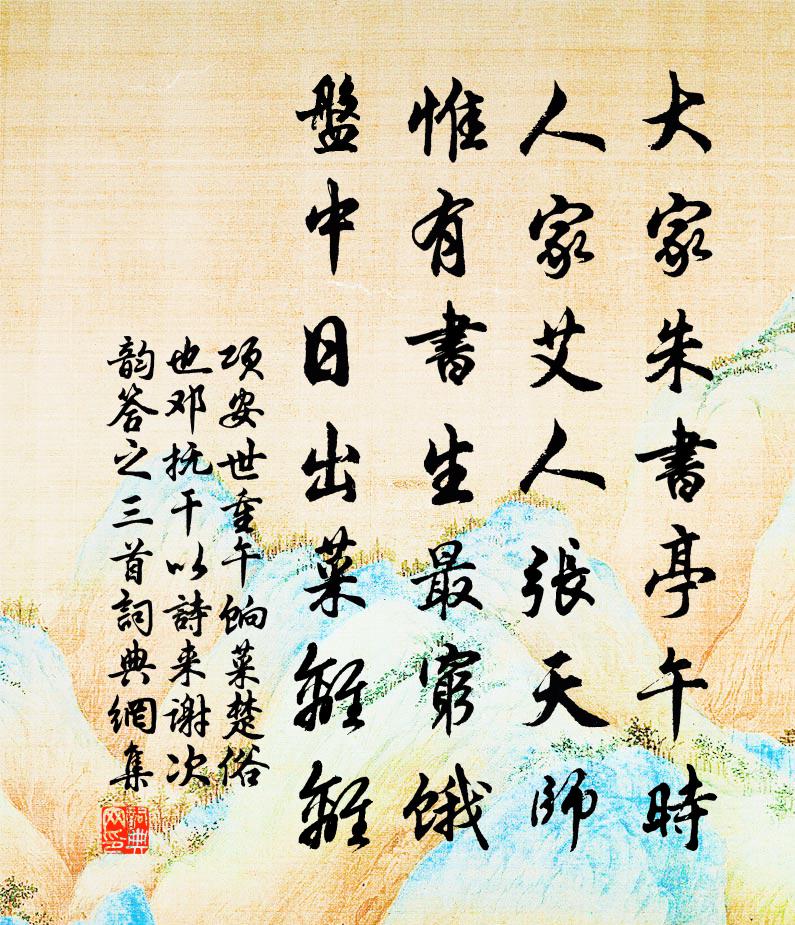 大家朱書亭午時
人家艾人張天師
惟有書生最窮餓
盤中日出菜離離
项安世重午餉菜楚俗
也邓抚干以詩来谢次
韵答之三首詞典網集
詞典網印